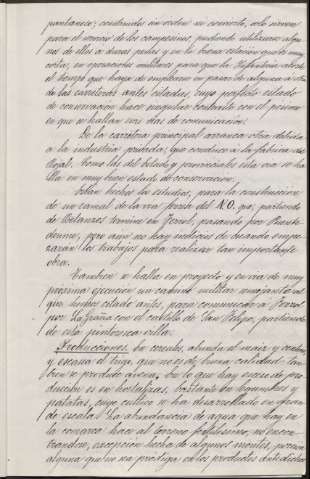 pantanos; construidos sin orden ni concierto, solo sirven
para el servicio de los campesinos, pudiendo utilizarse algu-
nos de ellos a duras penas y en la buena estación que es muy
corta, en operaciones militares para que la Infantería ahorre
el tiempo que haya de emplearse en pasar de alguna a otra
de las carreteras antes citadas, cuyo perfecto estado
de conservación hace singular contraste con el pésimo
en que se hallan sus dias de comunicación.
De la carretera principal arranca otra debida
a la industria privada, que conduce a la fábrica
Rojal. Como las del Estado y provinciales esta vía se ha-
lla en muy buen estado de conservación.
Están hechos los estudios, para la construcción
de un ramal de la vía férrea del N.O. que, partiendo
de Betanzos termine en Ferrol, pasando por Puente-
deume, pero aún no hay indicios de cuando empe-
zarán los trabajos para realizar tan importante
obra.
También se halla en proyecto y en vía de muy
próxima ejecución un camino militar semejante al
que hemos citado antes, para comunicar a Ferrol
por La Graña con el castillo de San Felipe, partiendo
de esta pintoresca villa.
Producciones. En cereales, abunda el maíz y centeno,
y escasea el trigo, que no es de buena calidad. Tam-
bien se produce avena. En lo que hay exceso de pro-
ducción es en hortalizas, bastante en legumbres y
patatas, cuyo cultivo se ha desarrollado en gran-
de escala. La abundancia de agua que hay en
la comarca hace al terreno feracísimo, no encon-
trandose, excepción hecha de algunos montes, porción
alguna que no sea pródiga en los productos antedichos